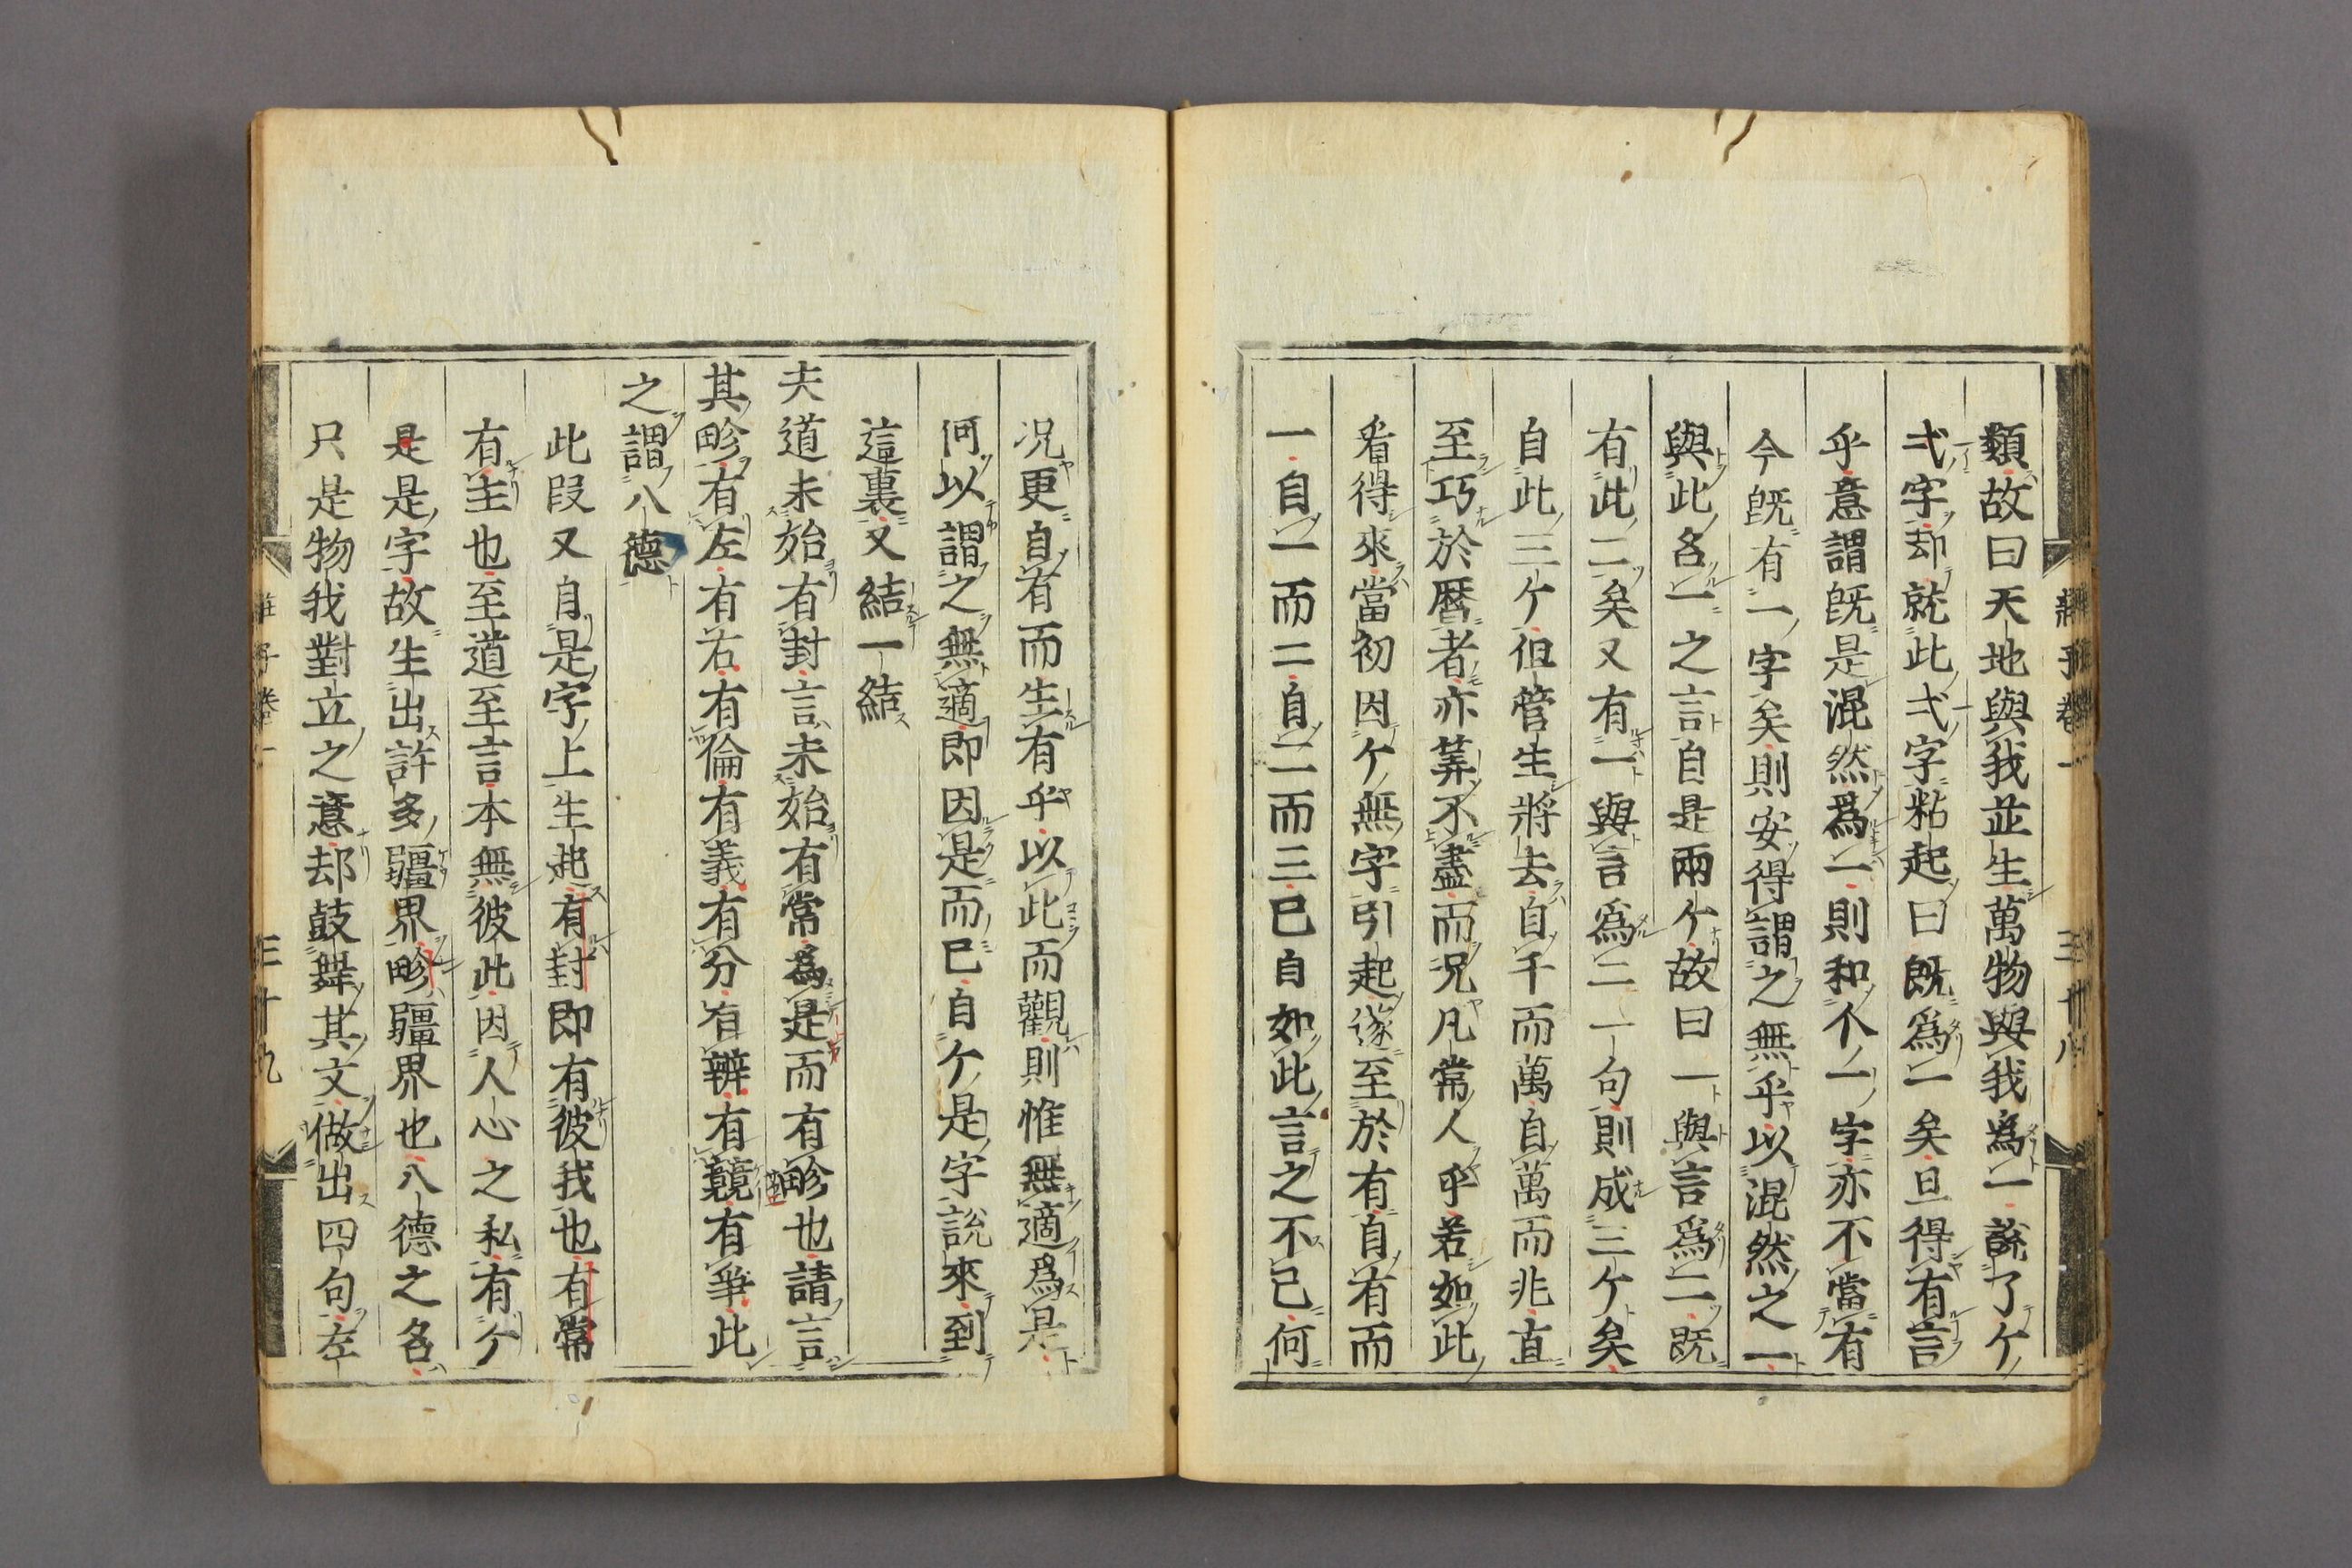 類故曰天地與我並生萬物與我爲一說了ケ
弌字却就此弌字粘起曰既爲一矣且得有言
乎意謂既是混然爲一則和个一字亦不當有
今既有一字矣則安得謂之無乎以混然之一
與此名一之言自是兩ケ故曰一與言爲二既
有此二矣又有一與言爲二一句則成三ケ矣
自此三ケ但管生將去自千而萬自萬而非直
至巧於曆者亦筭不盡而況凡常人乎若如此
看得來當初因ケ無字引起遂至於有自有而
一自一而二自二而三已自如此言之不已何
况更自有而生有乎以此而觀則惟無適爲是
何以謂之無適即因是而已自ケ是字說來到
這裏又結一結
夫道未始有封言未始有常爲是而有畛也請言
其畛有左有右有倫有義有分有辨有競有爭此
之謂八德
此段又自是字上生起有封即有彼我也有常
有主也至道至言本無彼此因人心之私有ケ
是是字故生出許多疆界畛疆界也八德之名
只是物我對立之意却鼓舞其文做出四句左
莊子卷一
三十九